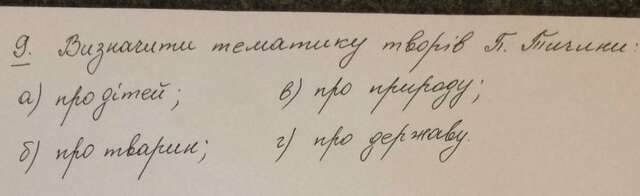 9. Визначити тематику творів П. Тичини:
а) про дітей; в) про природу;
б) про тварин; г) про державу.